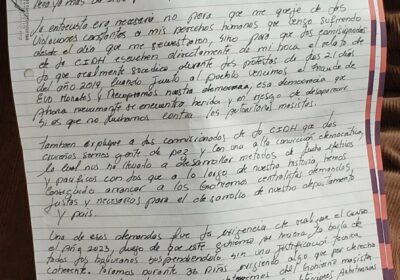 pero, ya más de
la entrevista era necesaria no para que me queje de las
violaciones constantes a mis derechos humanos que vengo sufriendo
desde el día que me secuestraron, sino para que los comisionados
de la CIDH escuchen directamente de mi boca el relato de
lo que realmente sucedió durante las protestas de los 21 días
del año 2019, cuando junto al pueblo vencimos el fraude de
Evo Morales y recuperamos nuestra democracia, esa democracia que
Ahora nuevamente se encuentra herida y en riesgo de desaparecer
si es que no luchamos contra los
También expliqué a los comisionados de la CIDH que los
cruceños somos gente de paz y con una alta convicción democrática,
la cual nos ha llevado a desarrollar métodos de lucha efectivos
y pacíficos con los que a lo largo de nuestra historia, hemos
conseguido arrancar a los gobiernos centralistas demandas
justas y necesarias para el desarrollo de nuestro departamento
y país.
Una de esas demandas fue la exigencia de que el censo
el Año 2023, luego de que este gobierno
todos los bolivianos suspendiéndolo sin una justificación técnica
coherente. Paramos durante 36 Días exigiendo algo que por derecho
del Gobierno masista